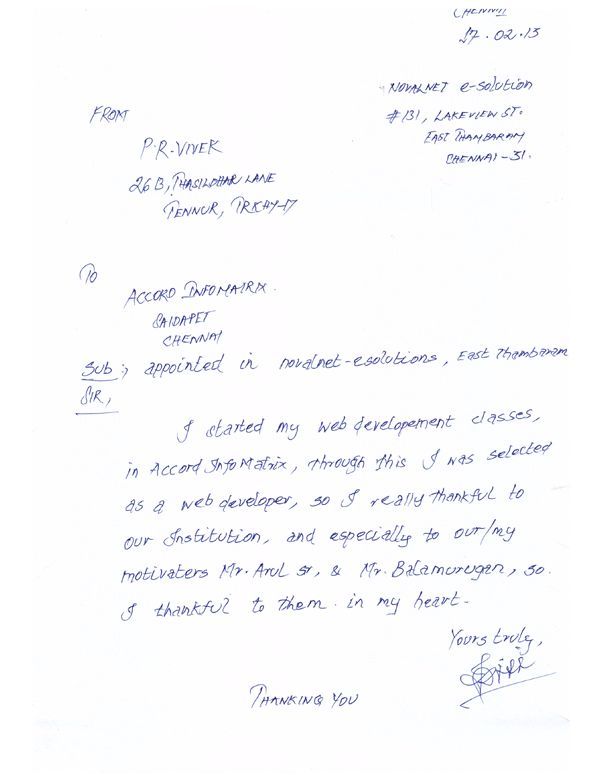 CHENNAI
27.02.13
NOVALNET e-solution
#131, LAKEVIEW ST.
EAST THAMBARAM
CHENNAI-31.
FROM
P.R-VIVEK
26B, THASILDHAR LANE
TENNUR, TRICHY-17
To
ACCORD INFOMATRIX.
SAIDAPET
CHENNAI
Sub :, appointed in novalnet-esolutions, East Thambaram
SIR,
I started my web developement classes,
in Accord InfoMatrix, through this I was selected
as a web developer, so I really thankful to
our Institution, and especially to our/my
motivaters Mr. Arul sr, & Mr. Balamurugan, so.
I thankful to them. in my heart.
Yours truly,
THANKING YOU